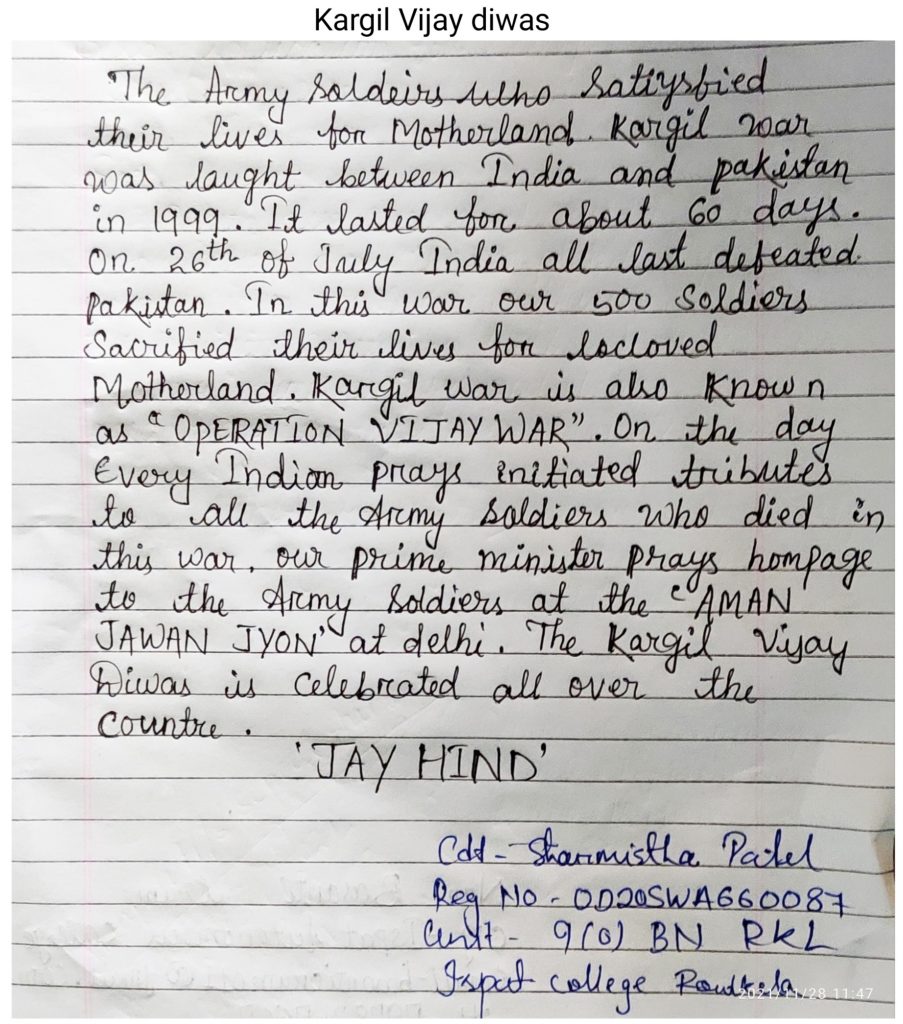 Kargil Vijay diwas
The Army Soldeirs who Satiysfied
their lives for Motherland. Kargil war
was laught between India and pakistan
in 1999. It lasted for about 60 days.
On 26th of July India all last defeated
pakistan. In this war our 500 Soldiers
Sacrified their lives for locloved
Motherland. Kargil war is also Known
as "OPERATION VIJAY WAR". On the day
Every Indian prays initiated tributes
to all the Army soldiers who died in
this war. our prime minister prays hompage
to the Army soldiers at the "AMAN
JAWAN JYON" at delhi. The Kargil Vijay
Diwas is celebrated all over the
countre.
'JAY HIND'
Cdt - Sharmistha Patel
Reg No - OD20SWA660087
Unit - 9(O) BN RKL
Ispat college Rourkela
2021/11/28 11:47